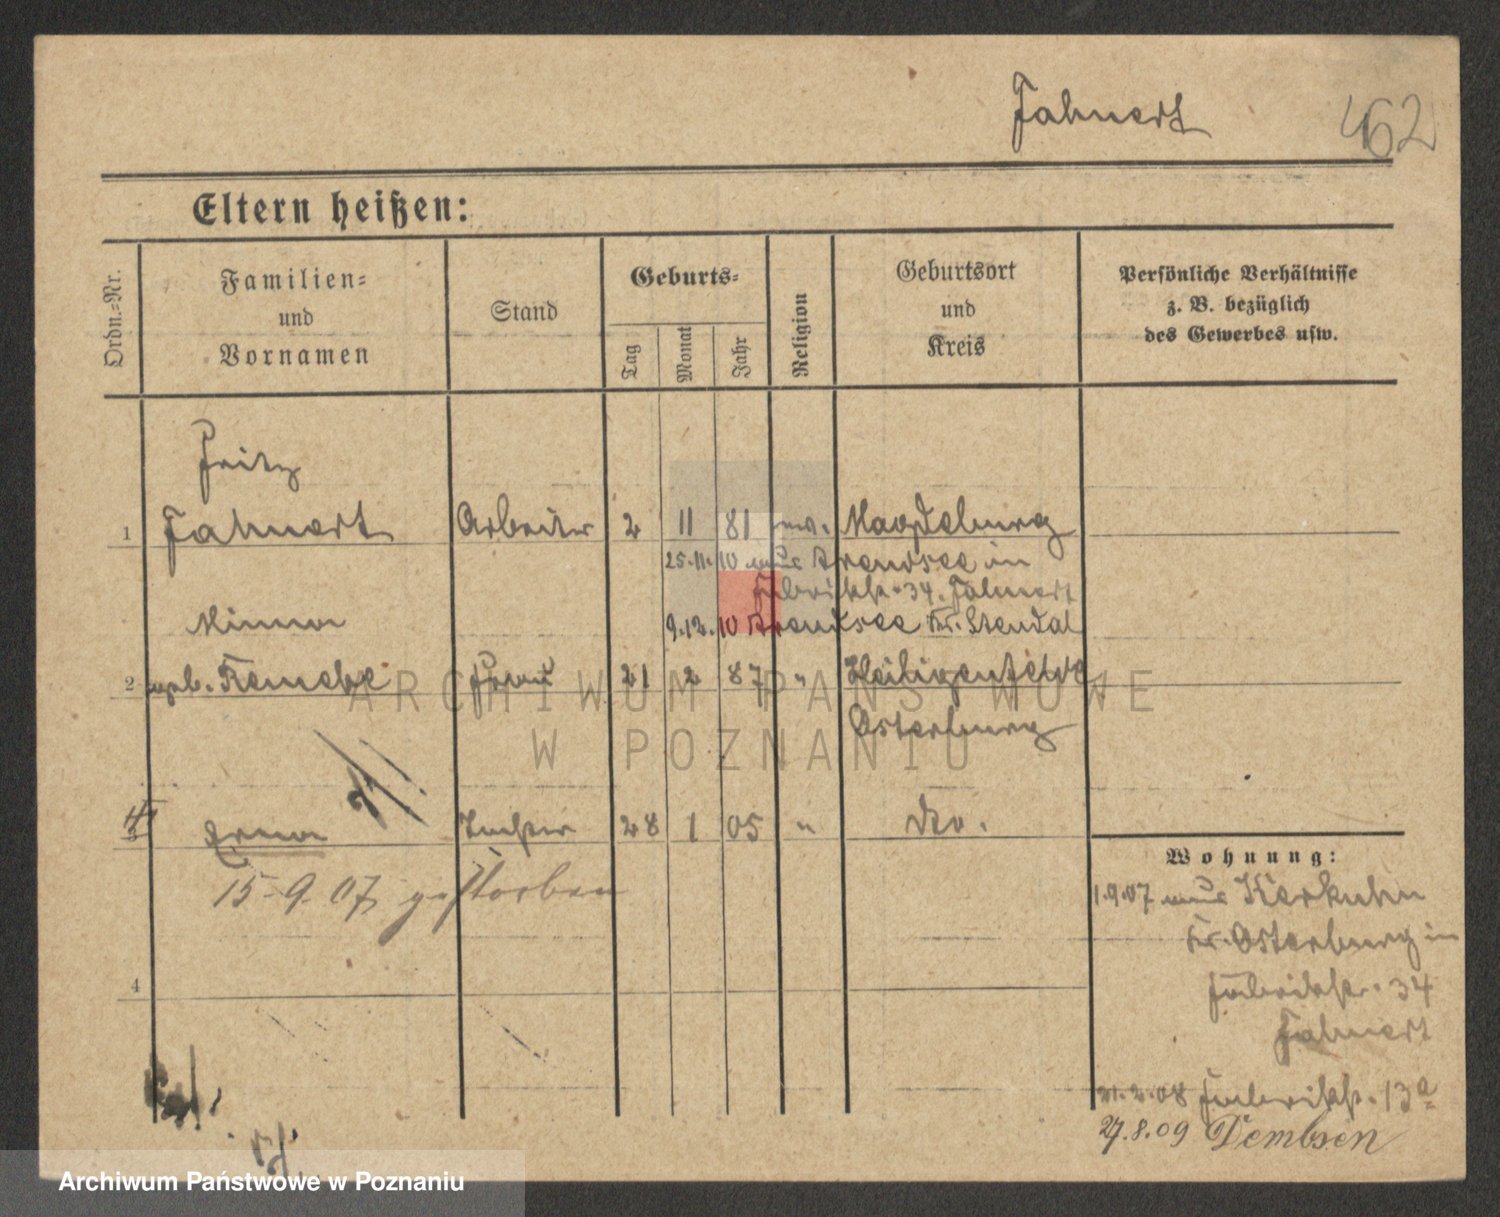 Fahnert
462
Eltern heißen:
Ordn.-Nr.
Familien-
und
Vornamen
Stand
Geburts-
Tag
Monat
Jahr
Religion
Geburtsort
und
Kreis
Persönliche Verhältnisse
z. B. bezüglich
des Gewerbes usw.
Fritz
1 Fahnert Arbeiter 2 11 81 ev. Magdeburg
25.11.10 aus Arendsee in
Fabrikstr. 34. Fahnert
Minna
9.12.10 Arendsee Kr. Stendal
2 geb. Frau 21 2 87 " Heiligenfelde
Osterburg
3 Erna Tochter 28 1 05 " Do.
15.9.07 gestorben
4
Wohnung:
1.9.07 aus Kerkuhn
Kr. Osterburg in
Fabrikstr. 34
Fahnert
21.2.08 Fabrikstr. 13a
27.8.09 Dembsen
ARCHIWUM PAŃSTWOWE
W POZNANIU
Archiwum Państwowe w Poznaniu